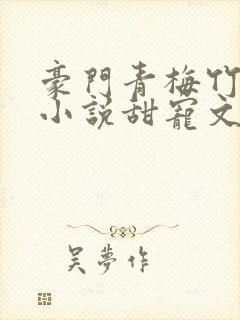 豪門青梅竹
小說甜寵文
吴夢作